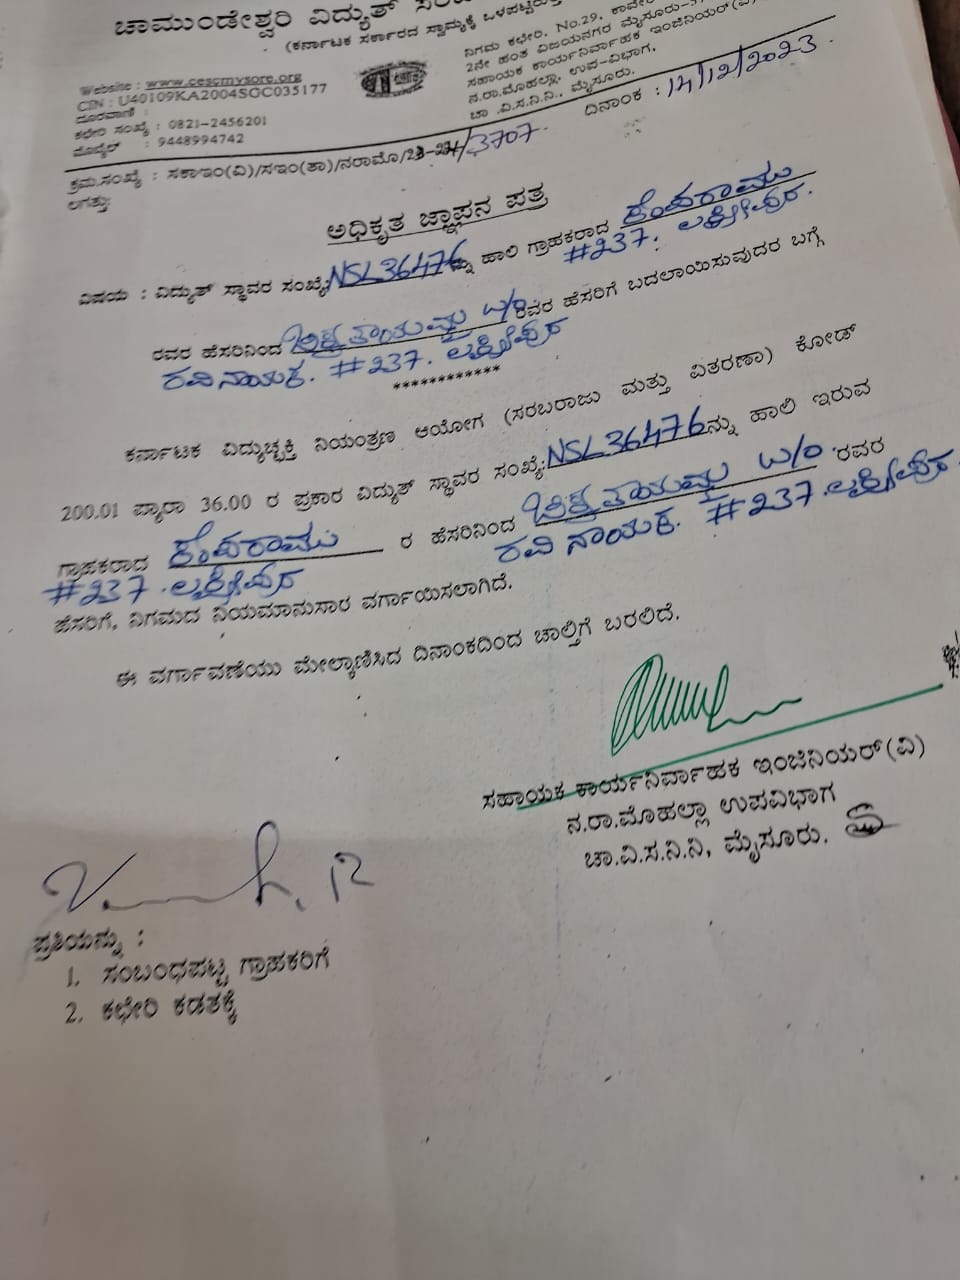 ಚಾಮುಂಡೇಶ್ವರಿ ವಿದ್ಯುತ್
(ಕರ್ನಾಟಕ ಸರ್ಕಾರದ ಸ್ವಾಮ್ಯಕ್ಕೆ ಒಳಪಟ್ಟ
ನಿಗಮ ಕಛೇರಿ, No.29,
2ನೇ ಹಂತ ವಿಜಯನಗರ ಮೈಸೂರು-
ಸಹಾಯಕ ಕಾರ್ಯನಿರ್ವಾಹಕ ಇಂಜಿನಿಯರ್(ವಿ)
ನ.ರಾ.ಮೊಹಲ್ಲಾ, ಉಪ-ವಿಭಾಗ,
ಚಾ.ವಿ.ಸ.ನಿ.ನಿ., ಮೈಸೂರು.
Website : www.cescmysore.org
CIN : U40109KA2004SGC035177
ದೂರವಾಣಿ :
ಕಛೇರಿ ಸಂಖ್ಯೆ : 0821-2456201
ಮೊಬೈಲ್ : 9448994742
ಕ್ರಮ.ಸಂಖ್ಯೆ : ಸಕಾಇಂ(ವಿ)/ಸಇಂ(ತಾ)/ನರಾಮೊ/23-24/3707. ದಿನಾಂಕ : 14/12/2023.
ಲಗತ್ತು:
ಅಧಿಕೃತ ಜ್ಞಾಪನ ಪತ್ರ
ವಿಷಯ : ವಿದ್ಯುತ್ ಸ್ಥಾವರ ಸಂಖ್ಯೆ: NSL36476 ನ್ನು ಹಾಲಿ ಗ್ರಾಹಕರಾದ ಕೆಂಪರಾಮು
#237.
ರವರ ಹೆಸರಿನಿಂದ ಚಿಕ್ಕತಾಯಮ್ಮ w/o ರವರ ಹೆಸರಿಗೆ ಬದಲಾಯಿಸುವುದರ ಬಗ್ಗೆ
ರವಿ ನಾಯಕ. #237.
************
ಕರ್ನಾಟಕ ವಿದ್ಯುಚ್ಛಕ್ತಿ ನಿಯಂತ್ರಣ ಆಯೋಗ (ಸರಬರಾಜು ಮತ್ತು ವಿತರಣಾ) ಕೋಡ್
200.01 ಪ್ಯಾರಾ 36.00 ರ ಪ್ರಕಾರ ವಿದ್ಯುತ್ ಸ್ಥಾವರ ಸಂಖ್ಯೆ: NSL36476 ನ್ನು ಹಾಲಿ ಇರುವ
ಗ್ರಾಹಕರಾದ ಕೆಂಪರಾಮು ರ ಹೆಸರಿನಿಂದ ಚಿಕ್ಕತಾಯಮ್ಮ w/o ರವರ
#237. ರವಿ ನಾಯಕ. #237.
ಹೆಸರಿಗೆ, ನಿಗಮದ ನಿಯಮಾನುಸಾರ ವರ್ಗಾಯಿಸಲಾಗಿದೆ.
ಈ ವರ್ಗಾವಣೆಯು ಮೇಲ್ಕಾಣಿಸಿದ ದಿನಾಂಕದಿಂದ ಚಾಲ್ತಿಗೆ ಬರಲಿದೆ.
ಸಹಾಯಕ ಕಾರ್ಯನಿರ್ವಾಹಕ ಇಂಜಿನಿಯರ್(ವಿ)
ನ.ರಾ.ಮೊಹಲ್ಲಾ ಉಪವಿಭಾಗ
ಚಾ.ವಿ.ಸ.ನಿ.ನಿ, ಮೈಸೂರು.
ಪ್ರತಿಯನ್ನು :
1. ಸಂಬಂಧಪಟ್ಟ ಗ್ರಾಹಕರಿಗೆ
2. ಕಛೇರಿ ಕಡತಕ್ಕೆ